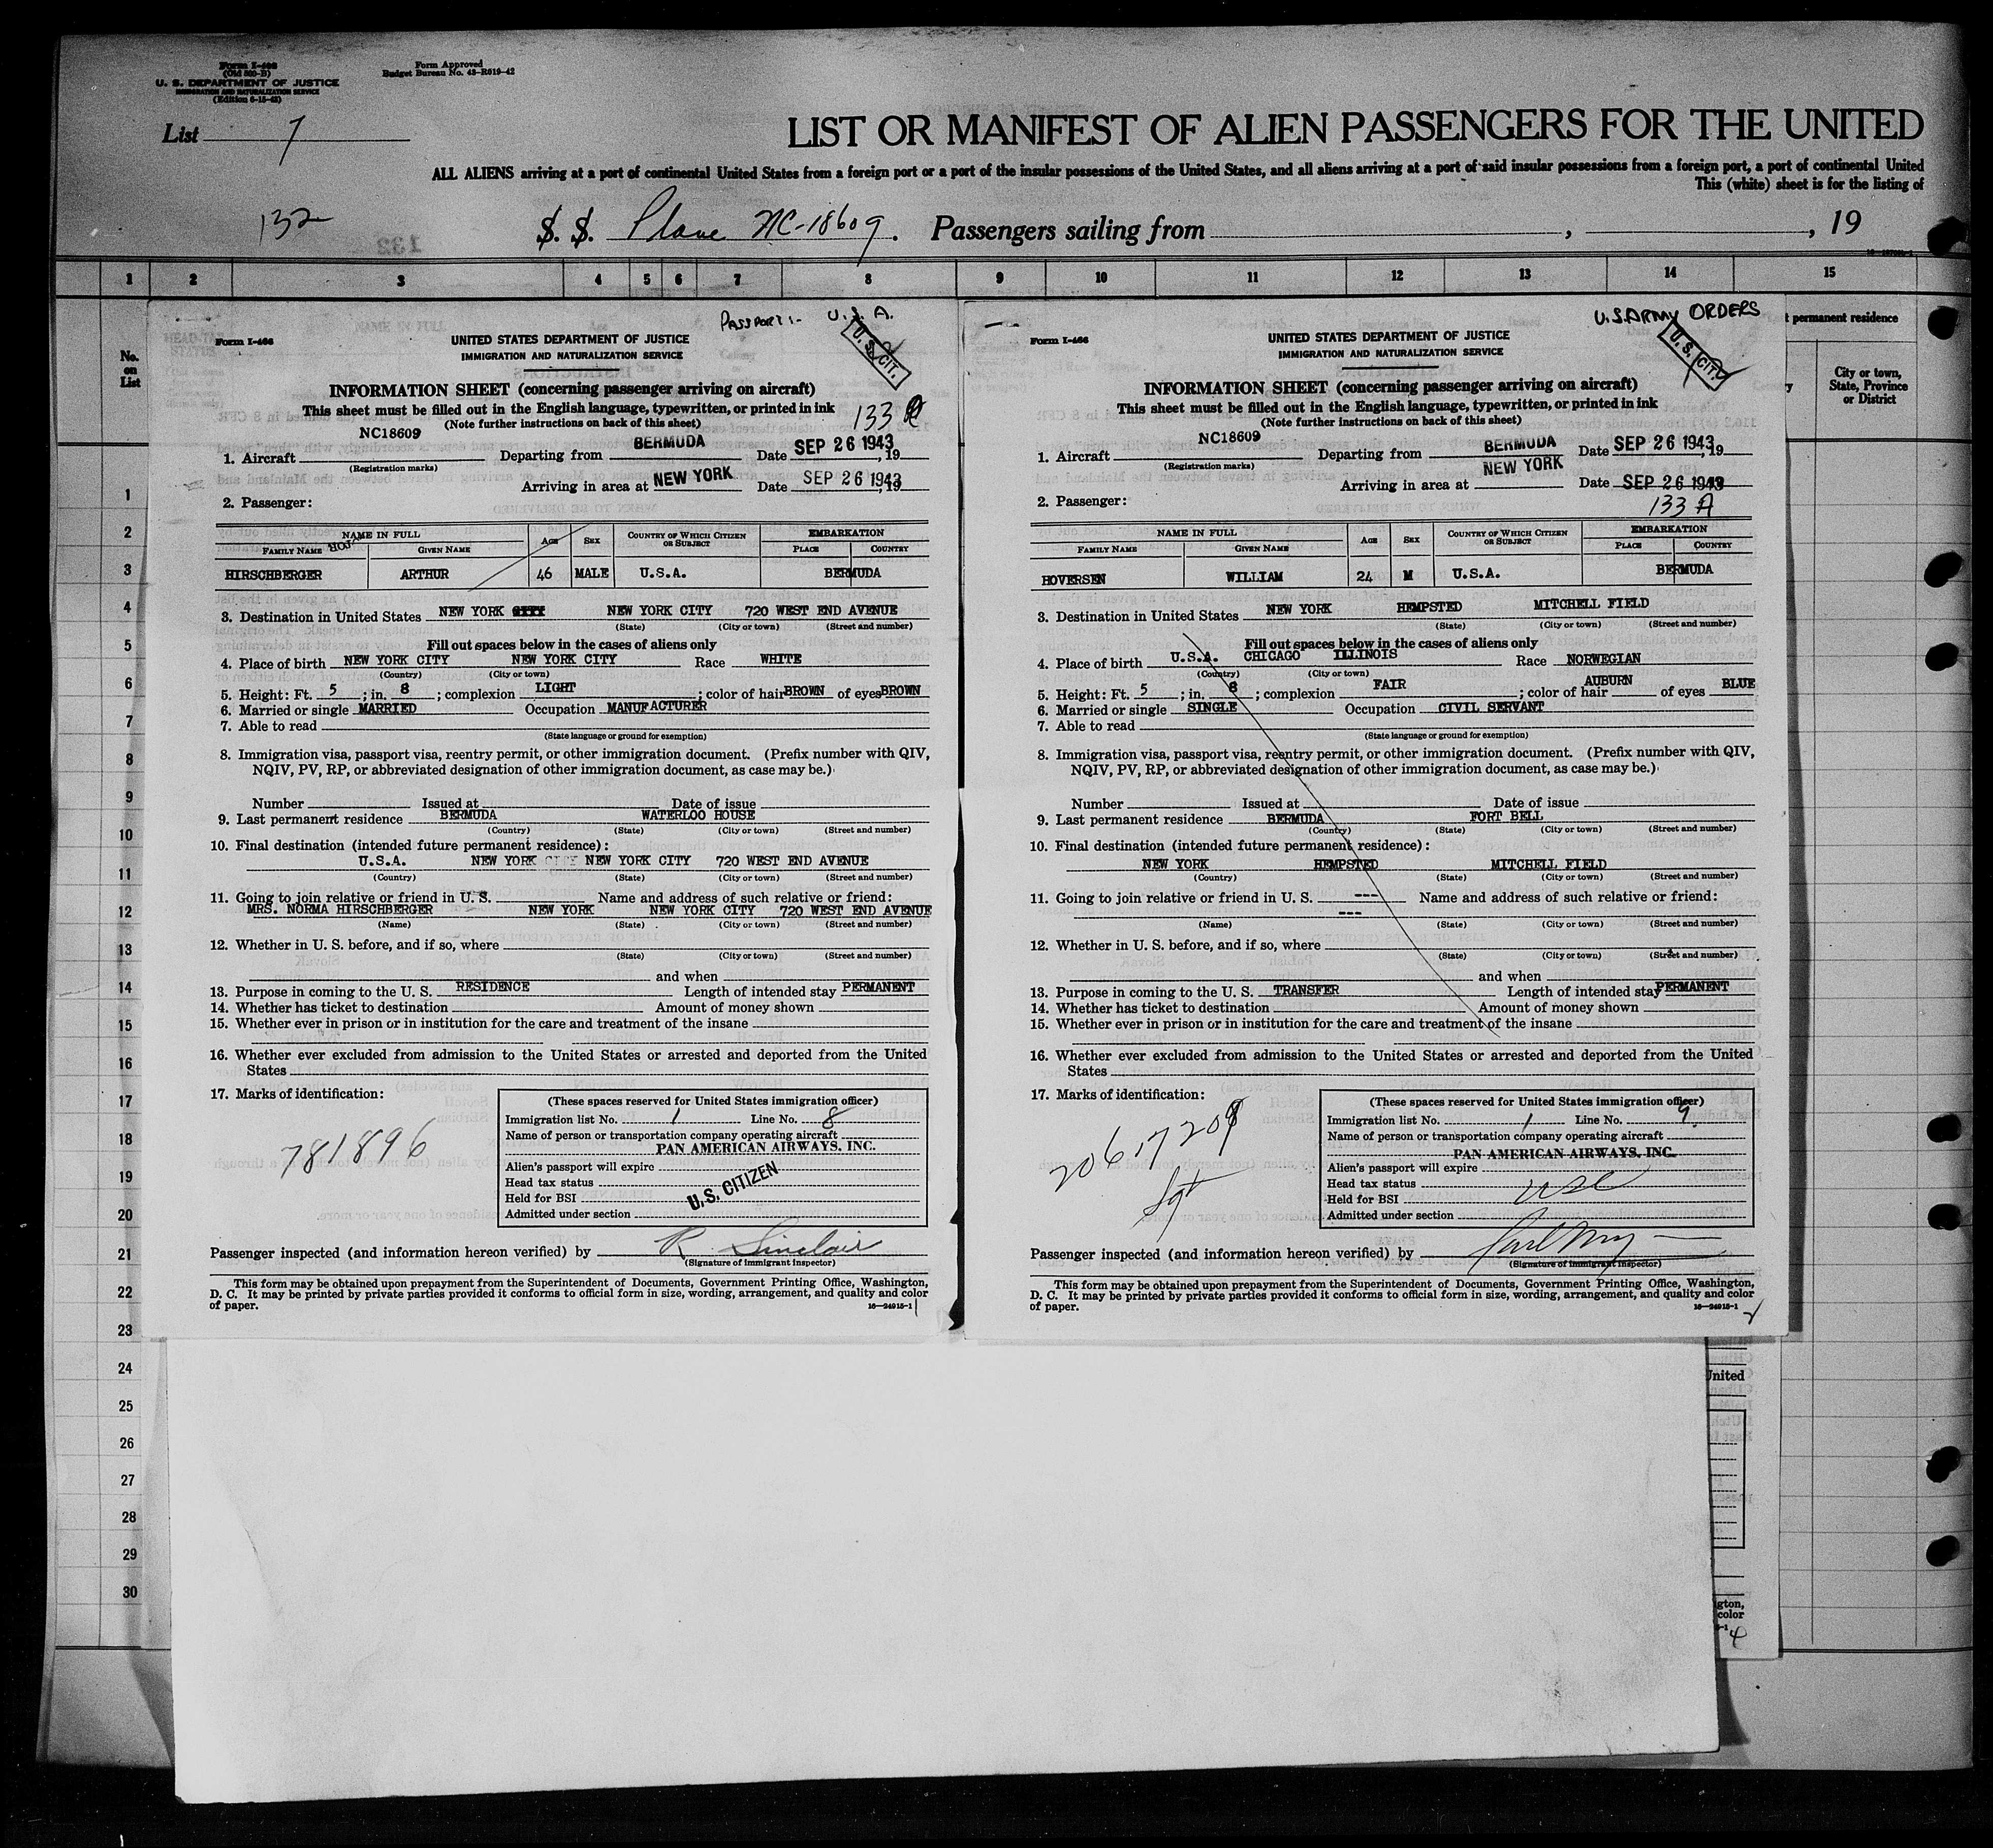 Form I-466
(Old 500-B)
U. S. DEPARTMENT OF JUSTICE
IMMIGRATION AND NATURALIZATION SERVICE
(Edition 6-15-43)
Form Approved
Budget Bureau No. 43-R019-42
List 7
LIST OR MANIFEST OF ALIEN PASSENGERS FOR THE UNITED
ALL ALIENS arriving at a port of continental United States from a foreign port or a port of the insular possessions of the United States, and all aliens arriving at a port of said insular possessions from a foreign port, a port of continental United
This (white) sheet is for the listing of
132
S. S. Plane NC-18609. Passengers sailing from , , 19
1 2 3 4 5 6 7 8 9 10 11 12 13 14 15
No. on List
permanent residence
City or town, State, Province or District
1
2
3
4
5
6
7
8
9
10
11
12
13
14
15
16
17
18
19
20
21
22
23
24
25
26
27
28
29
30
PASSPORT:- U.S.A.
U.S. CIT.
Form I-466
UNITED STATES DEPARTMENT OF JUSTICE
IMMIGRATION AND NATURALIZATION SERVICE
INFORMATION SHEET (concerning passenger arriving on aircraft)
This sheet must be filled out in the English language, typewritten, or printed in ink
133
(Note further instructions on back of this sheet)
NC18609 BERMUDA SEP 26 1943
1. Aircraft Departing from Date , 19
(Registration marks)
Arriving in area at NEW YORK Date SEP 26 1943, 19
2. Passenger:
NAME IN FULL Age Sex Country of Which Citizen or Subject EMBARKATION
Family Name Given Name Place Country
HIRSCHBERGER ARTHUR 46 MALE U.S.A. BERMUDA
3. Destination in United States NEW YORK NEW YORK CITY 720 WEST END AVENUE
(State) (City or town) (Street and number)
Fill out spaces below in the cases of aliens only
4. Place of birth NEW YORK CITY NEW YORK CITY Race WHITE
(Country) (City or town)
5. Height: Ft. 5 ; in. 8 ; complexion LIGHT ; color of hair BROWN of eyes BROWN
6. Married or single MARRIED Occupation MANUFACTURER
7. Able to read
(State language or ground for exemption)
8. Immigration visa, passport visa, reentry permit, or other immigration document. (Prefix number with QIV,
NQIV, PV, RP, or abbreviated designation of other immigration document, as case may be.)
Number Issued at Date of issue
9. Last permanent residence BERMUDA WATERLOO HOUSE
(Country) (State) (City or town) (Street and number)
10. Final destination (intended future permanent residence):
U.S.A. NEW YORK CITY NEW YORK CITY 720 WEST END AVENUE
(Country) (State) (City or town) (Street and number)
11. Going to join relative or friend in U. S. Name and address of such relative or friend:
MRS. NORMA HIRSCHBERGER NEW YORK NEW YORK CITY 720 WEST END AVENUE
(Name) (State) (City or town) (Street and number)
12. Whether in U. S. before, and if so, where
(State) (City or town) (Street and number)
and when
13. Purpose in coming to the U. S. RESIDENCE Length of intended stay PERMANENT
14. Whether has ticket to destination Amount of money shown
15. Whether ever in prison or in institution for the care and treatment of the insane
16. Whether ever excluded from admission to the United States or arrested and deported from the United
States
17. Marks of identification:
781896
(These spaces reserved for United States immigration officer)
Immigration list No. 1 Line No. 8
Name of person or transportation company operating aircraft
PAN AMERICAN AIRWAYS, INC.
Alien's passport will expire
Head tax status
Held for BSI
U.S. CITIZEN
Admitted under section
Passenger inspected (and information hereon verified) by R. Sinclair
(Signature of immigrant inspector)
This form may be obtained upon prepayment from the Superintendent of Documents, Government Printing Office, Washington,
D. C. It may be printed by private parties provided it conforms to official form in size, wording, arrangement, and quality and color
of paper.
16—24915-1
U.S. ARMY ORDERS
U.S. CIT.
Form I-466
UNITED STATES DEPARTMENT OF JUSTICE
IMMIGRATION AND NATURALIZATION SERVICE
INFORMATION SHEET (concerning passenger arriving on aircraft)
This sheet must be filled out in the English language, typewritten, or printed in ink
(Note further instructions on back of this sheet)
NC18609 BERMUDA SEP 26 1943
1. Aircraft Departing from Date , 19
(Registration marks)
Arriving in area at NEW YORK Date SEP 26 1943
2. Passenger: 133 A
NAME IN FULL Age Sex Country of Which Citizen or Subject EMBARKATION
Family Name Given Name Place Country
HOVERSEN WILLIAM 24 M U.S.A. BERMUDA
3. Destination in United States NEW YORK HEMPSTED MITCHELL FIELD
(State) (City or town) (Street and number)
Fill out spaces below in the cases of aliens only
4. Place of birth U.S.A. CHICAGO ILLINOIS Race NORWEGIAN
(Country) (City or town)
5. Height: Ft. 5 ; in. 8 ; complexion FAIR ; color of hair AUBURN of eyes BLUE
6. Married or single SINGLE Occupation CIVIL SERVANT
7. Able to read
(State language or ground for exemption)
8. Immigration visa, passport visa, reentry permit, or other immigration document. (Prefix number with QIV,
NQIV, PV, RP, or abbreviated designation of other immigration document, as case may be.)
Number Issued at Date of issue
9. Last permanent residence BERMUDA FORT BELL
(Country) (State) (City or town) (Street and number)
10. Final destination (intended future permanent residence):
NEW YORK HEMPSTED MITCHELL FIELD
(Country) (State) (City or town) (Street and number)
11. Going to join relative or friend in U. S. --- Name and address of such relative or friend:
---
(Name) (State) (City or town) (Street and number)
12. Whether in U. S. before, and if so, where
(State) (City or town) (Street and number)
and when
13. Purpose in coming to the U. S. TRANSFER Length of intended stay PERMANENT
14. Whether has ticket to destination Amount of money shown
15. Whether ever in prison or in institution for the care and treatment of the insane
16. Whether ever excluded from admission to the United States or arrested and deported from the United
States
17. Marks of identification:
Sgt
(These spaces reserved for United States immigration officer)
Immigration list No. 1 Line No. 9
Name of person or transportation company operating aircraft
PAN AMERICAN AIRWAYS, INC.
Alien's passport will expire
Head tax status
Held for BSI USC
Admitted under section
Passenger inspected (and information hereon verified) by
(Signature of immigrant inspector)
This form may be obtained upon prepayment from the Superintendent of Documents, Government Printing Office, Washington,
D. C. It may be printed by private parties provided it conforms to official form in size, wording, arrangement, and quality and color
of paper.
16—24915-1
United
gton,
color
4